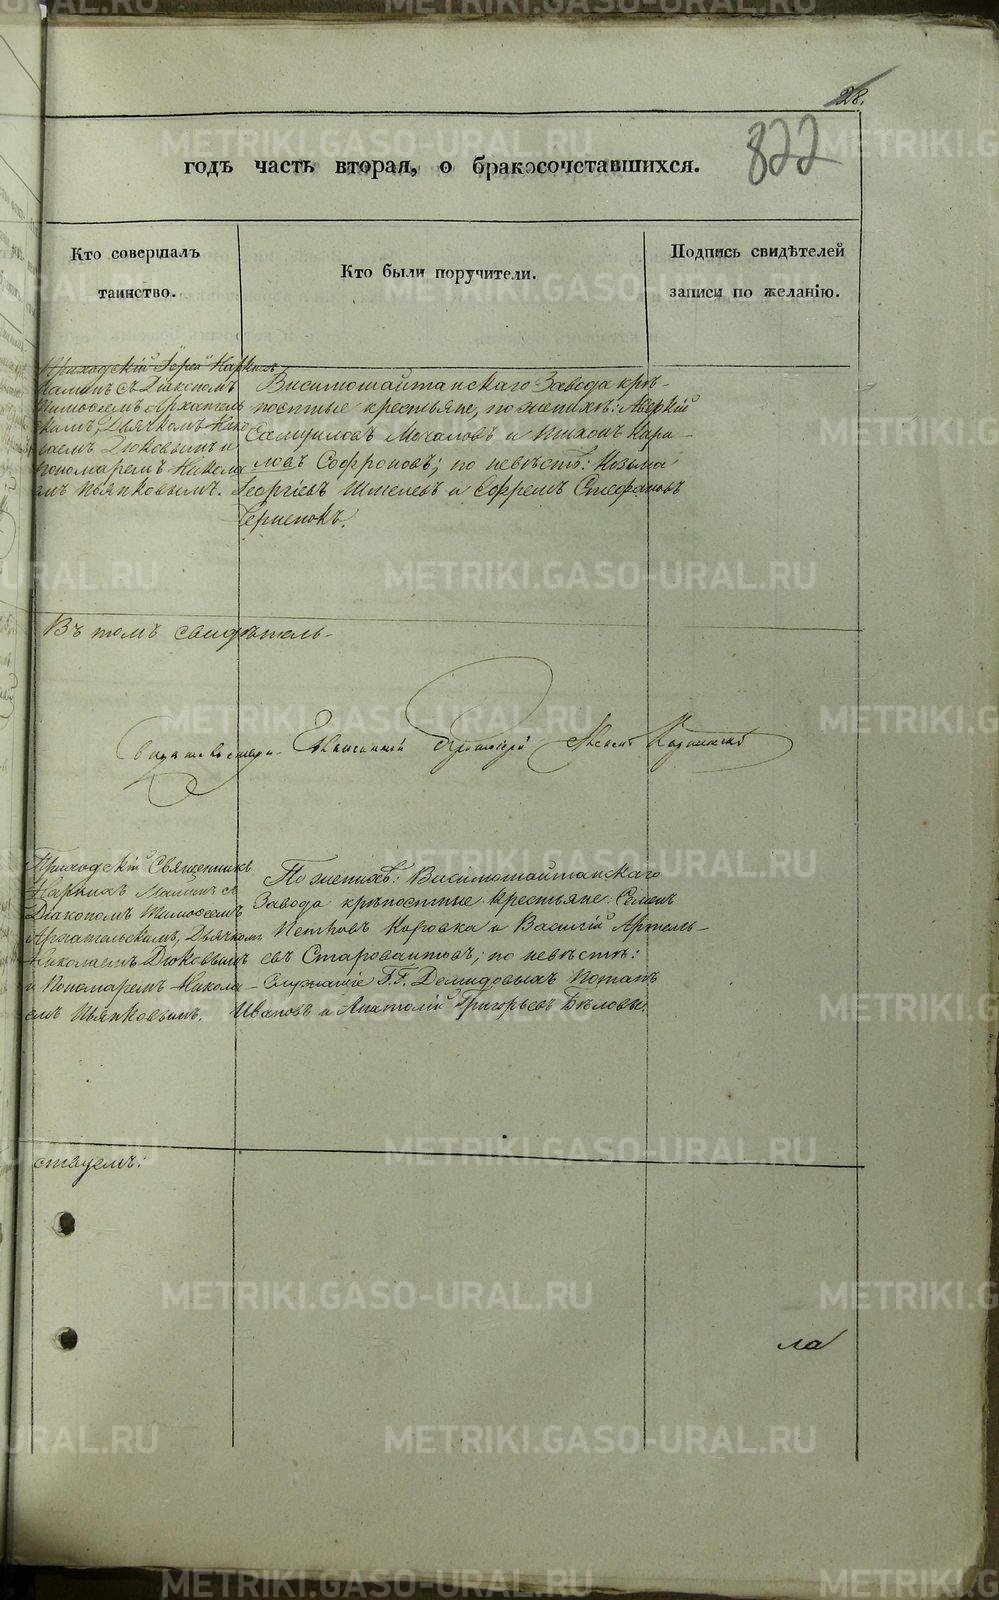 28.
822
годъ часть вторая, о бракосочетавшихся.
Кто совершалъ
таинство.
Кто были поручители.
Подпись свидѣтелей
записи по желанію.
Приходскій Іерей Наркисъ
Маминъ съ Діакономъ
Тимоѳеемъ Архангель
скимъ, Дьячкомъ Нико
лаемъ Дюковымъ и
пономаремъ Никола
емъ Пьянковымъ.
Висимошайтанскаго Завода крѣ-
постные крестьяне, по женихѣ: Аверкій
Самуиловъ Мочаловъ и Тихонъ Кари-
ловъ Софроновъ; по невѣстѣ: Козьма
Георгіевъ и Ефремъ Стефановъ
Въ томъ свидѣтель-
Протоіерей
Приходскій Священникъ
Наркисъ Маминъ съ
Діакономъ Тимоѳеемъ
Архангельскимъ, Дьячкомъ
Николаемъ Дюковымъ
и Пономаремъ Никола-
емъ Пьянковымъ.
По женихѣ: Висимошайтанскаго
Завода крѣпостные крестьяне: Семенъ
Петровъ Коровка и Василій Артемь-
евъ; по невѣстѣ:
Служащіе Г.Г. Демидовыхъ Потапъ
Ивановъ и Анатолій Григорьевъ Бѣловы.
ствуемъ:
ла
METRIKI.GASO-URAL.RU